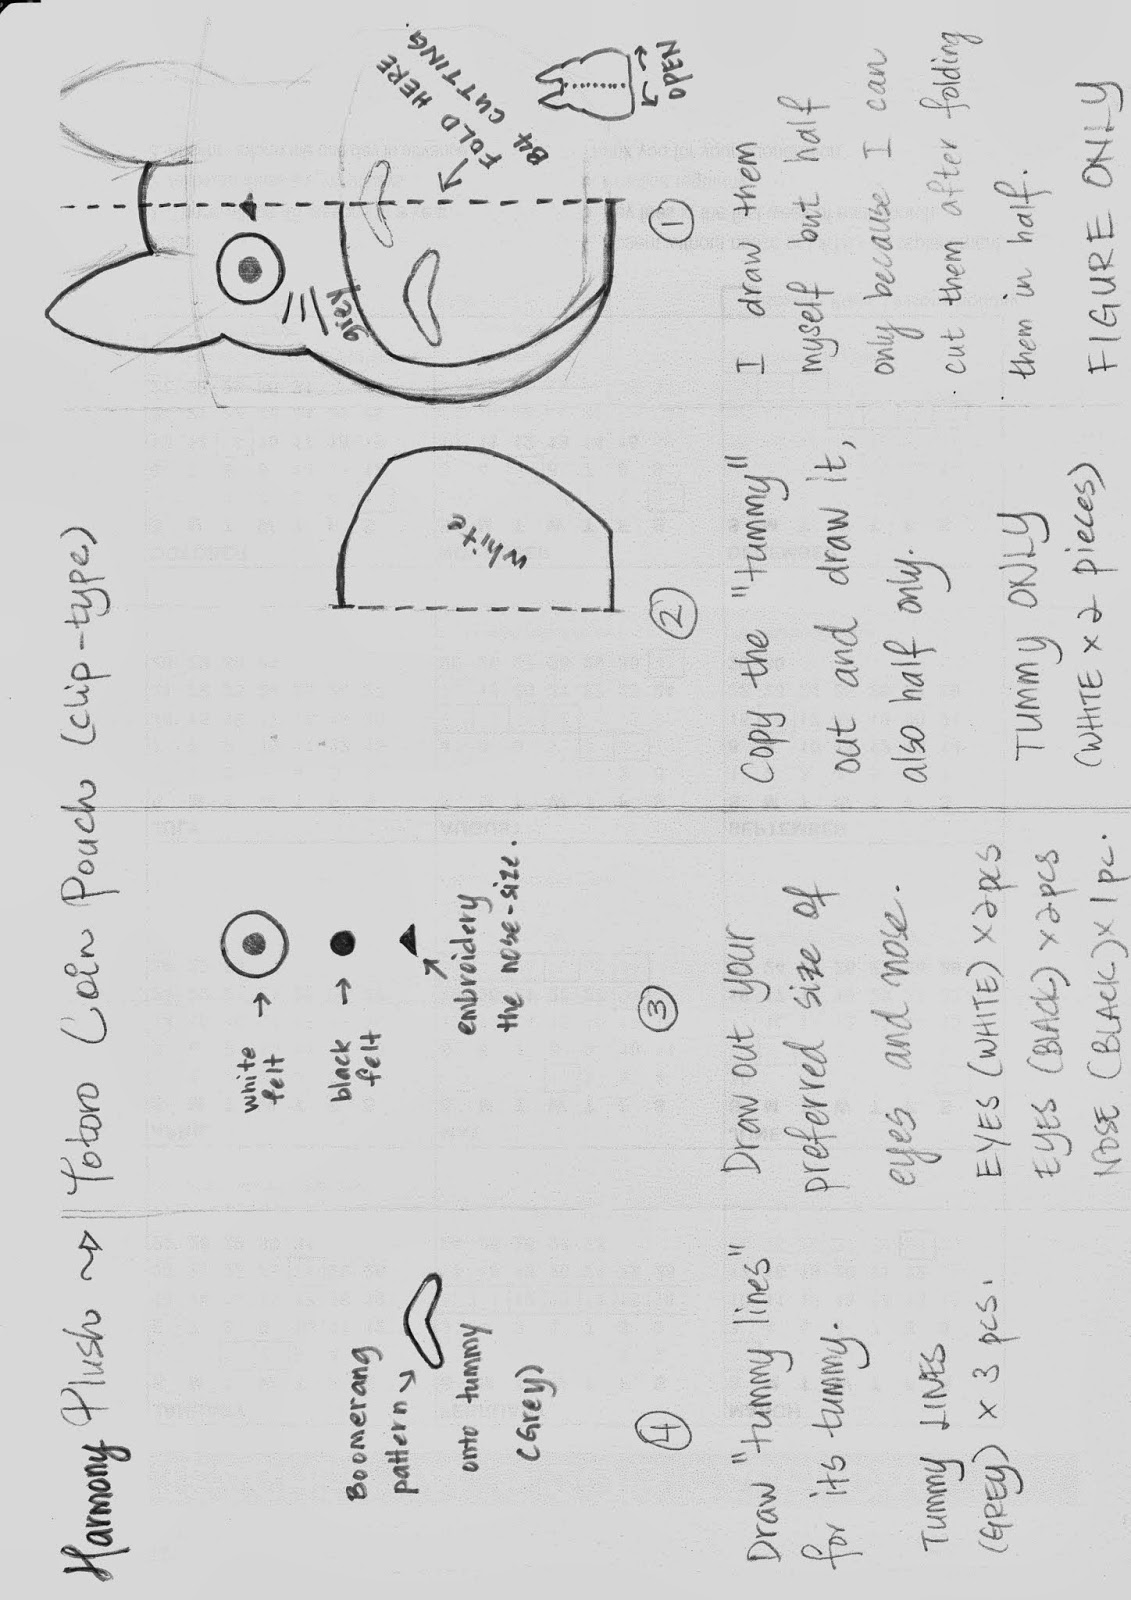 Harmony Plush ~> Totoro Coin Pouch (clip-type)
Boomerang
pattern
onto tummy
(Grey)
④
Draw "tummy lines"
for its tummy.
TUMMY LINES
(GREY) x 3 pcs.
white
felt →
black
felt →
embroidery
the nose-size.
③
Draw out your
preferred size of
eyes and nose.
EYES (WHITE) x 2pcs
EYES (BLACK) x 2pcs
NOSE (BLACK) x 1pc.
white
②
Copy the "tummy"
out and draw it,
also half only.
TUMMY ONLY
(WHITE x 2 pieces)
grey
FOLD HERE
B4 CUTTING.
OPEN
①
I draw them
myself but half
only because I can
cut them after folding
them in half.
FIGURE ONLY